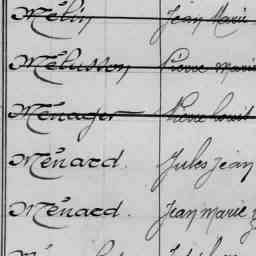 Mélin Jean Marie
Mélusson Pierre Marie
Ménager Pierre Louis
Ménard. Jules Jean
Ménard. Jean Marie